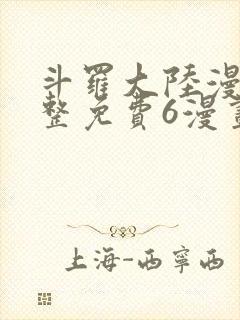 斗羅大陸漫
整免費6漫畫
上海-西寧西